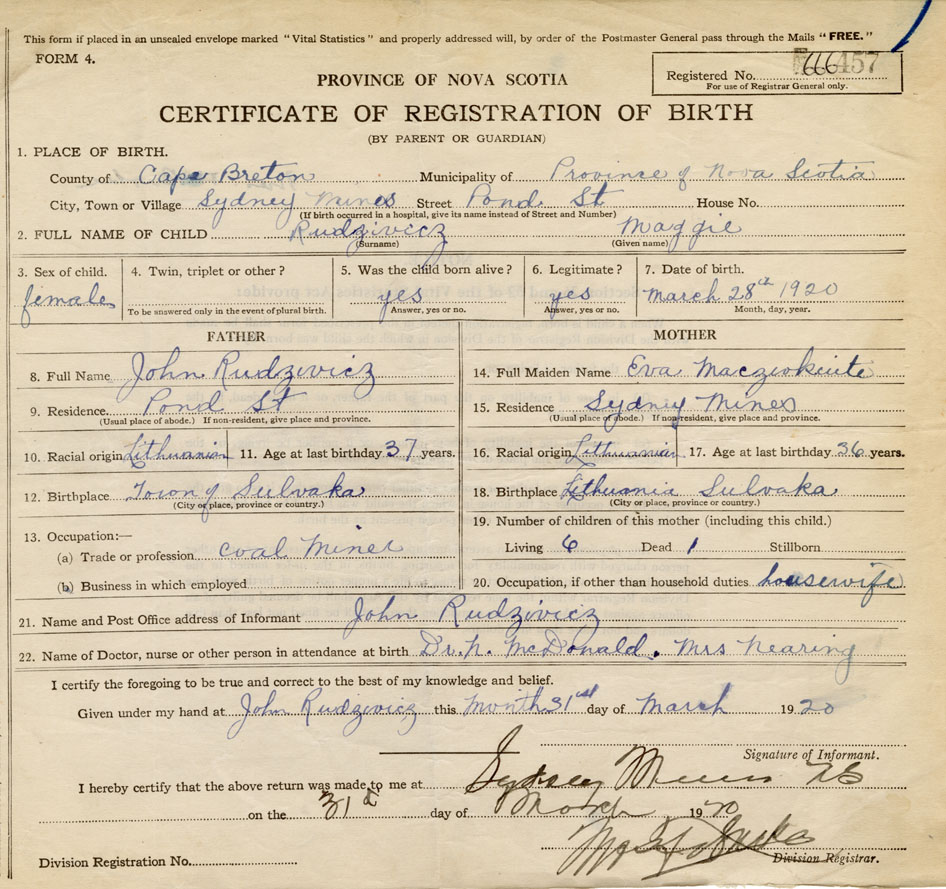 This form if placed in an unsealed envelope marked "Vital Statistics" and properly addressed will, by order of the Postmaster General pass through the Mails "FREE."
FORM 4.
PROVINCE OF NOVA SCOTIA
Registered No. 666457
For use of Registrar General only.
CERTIFICATE OF REGISTRATION OF BIRTH
(BY PARENT OR GUARDIAN)
1. PLACE OF BIRTH.
County of Cape Breton Municipality of Province of Nova Scotia
City, Town or Village Sydney Mines Street Pond St House No.
(If birth occurred in a hospital, give its name instead of Street and Number)
2. FULL NAME OF CHILD Rudzivicz Maggie
(Surname) (Given name)
3. Sex of child. 4. Twin, triplet or other? 5. Was the child born alive? 6. Legitimate? 7. Date of birth.
female yes yes March 28th 1920
To be answered only in the event of plural birth. Answer, yes or no. Answer, yes or no. Month, day, year.
FATHER MOTHER
8. Full Name John Rudzivicz 14. Full Maiden Name Eva
9. Residence. Pond St 15. Residence Sydney Mines
(Usual place of abode.) If non-resident, give place and province. (Usual place of abode.) If non-resident, give place and province.
10. Racial origin Lithuanian 11. Age at last birthday 37 years. 16. Racial origin Lithuanian 17. Age at last birthday 36 years.
12. Birthplace Town of Sulvaka 18. Birthplace Lithuania Sulvaka
(City or place, province or country.) (City or place, province or country.)
13. Occupation:— 19. Number of children of this mother (including this child.)
(a) Trade or profession coal Miner Living 6 Dead 1 Stillborn
(b) Business in which employed 20. Occupation, if other than household duties housewife
21. Name and Post Office address of Informant John Rudzivicz
22. Name of Doctor, nurse or other person in attendance at birth Dr. N. McDonald. Mrs Nearing
I certify the foregoing to be true and correct to the best of my knowledge and belief.
Given under my hand at John Rudzivicz this Month 31st day of March 1920
Signature of Informant.
I hereby certify that the above return was made to me at Sydney Mines
on the 31 day of March 1920
Division Registration No. Division Registrar.